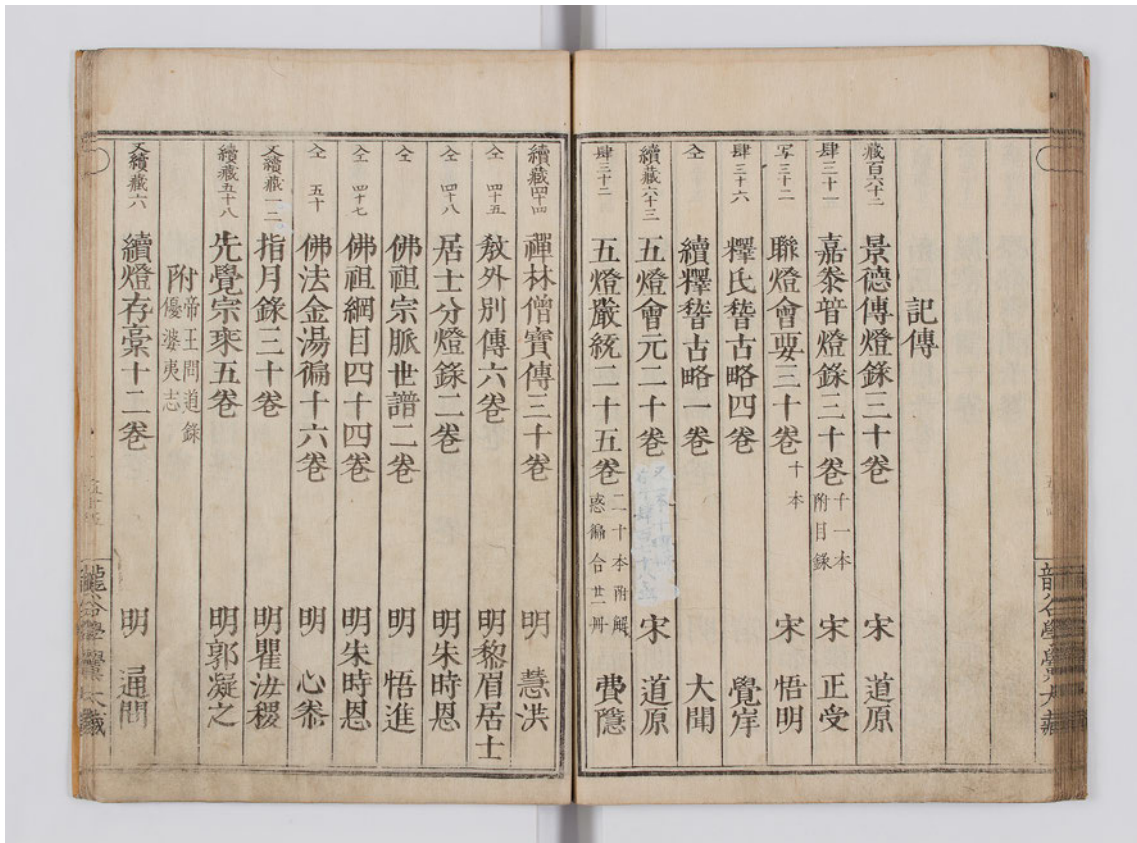 記傳
藏百六十二 景德傳燈錄三十卷 宋 道原
肆三十一 嘉泰普燈錄三十卷 十一本 附目錄 宋 正受
写三十二 聯燈會要三十卷 十本 宋 悟明
肆三十六 釋氏稽古略四卷 覺岸
仝 續釋稽古略一卷 大聞
續藏六十三 五燈會元二十卷 宋 道原
肆三十二 五燈嚴統二十五卷 二十本附解 惑徧合廿一冊 費隱
續藏四十四 禪林僧寶傳三十卷 明 慧洪
仝 四十五 敎外別傳六卷 明黎眉居士
仝 四十八 居士分燈錄二卷 明朱時恩
仝 佛祖宗脈世譜二卷 明 悟進
仝 四十七 佛祖綱目四十四卷 明朱時恩
仝 五十 佛法金湯徧十六卷 明 心泰
又續藏一二 指月錄三十卷 明瞿汝稷
續藏五十八 先覺宗乘五卷 明郭凝之
附 帝王問道錄 優婆夷志
又續藏六 續燈存稾十二卷 明 通問
龍谷學黌大藏